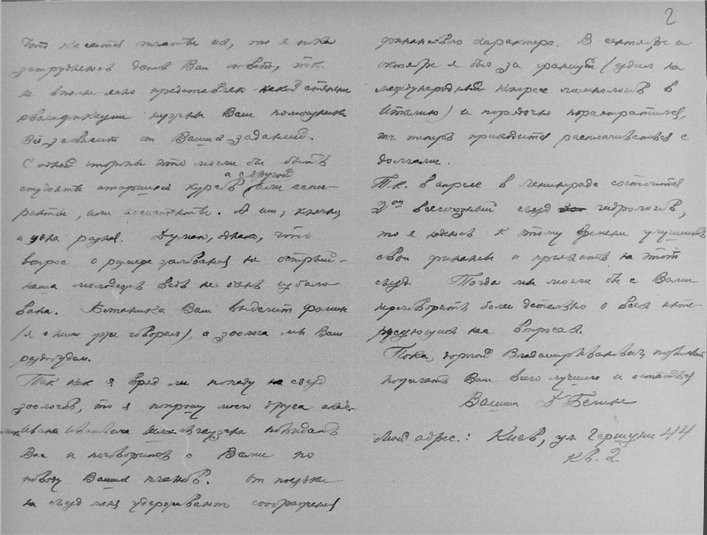 2
Что касается платы им, то я пока
затрудняюсь дать Вам ответ, т.к.
не вполне ясно представляю какой степени
квалификации нужны Вам помощники.
Всё зависит от Ваших заданий.
С одной стороны это могли бы быть
студенты старших курсов, а с другой или аспи-
ранты, или ассистенты. А им, конечно,
и цена разная. Думаю, однако, что
вопрос о размере жалования не острый –
наша молодежь ведь не очень избало-
вана. Ботаника Вам выделит Фомин
(я с ним уже говорил), а зоолога мы Вам
раздобудем.
Так как я вряд ли попаду на съезд
зоологов, то я попрошу моего друга акад.
Ивана Ивановича Шмальгаузена повидать
Вас и поговорить с Вами по
поводу Ваших планов. От поездки
на съезд меня удерживают соображения
финансового характера. В сентябре и
октябре я был за границей (ездил на
международный конгресс лимнологов в
Италию) и порядочно поистратился,
и теперь приходится расплачиваться с
долгами.
Т.к. в апреле в Ленинграде состоится
2ой всесоюзный съезд гидрологов,
то я надеюсь к тому времени улучшить
свои финансы и приехать на этот
съезд. Тогда мы могли бы с Вами
переговорить более детально о всех инте-
ресующих нас вопросах.
Пока, дорогой Владимир Иванович, позвольте
пожелать Вам всего лучшего и остаться
Вашим Д Белинг
Мой адрес: Киев, ул Гершуни 44
кв. 2